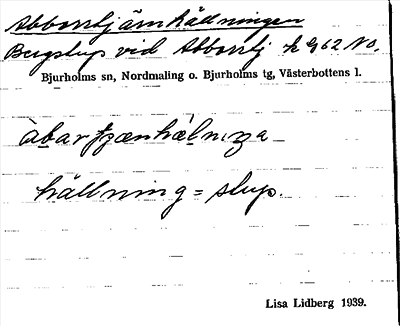 Abborrtjärnhällningen
Bergslup vid Abborrtj k G 62 NO.
Bjurholms sn, Nordmaling o. Bjurholms tg, Västerbottens l.
hällning = slup.
Lisa Lidberg 1939.